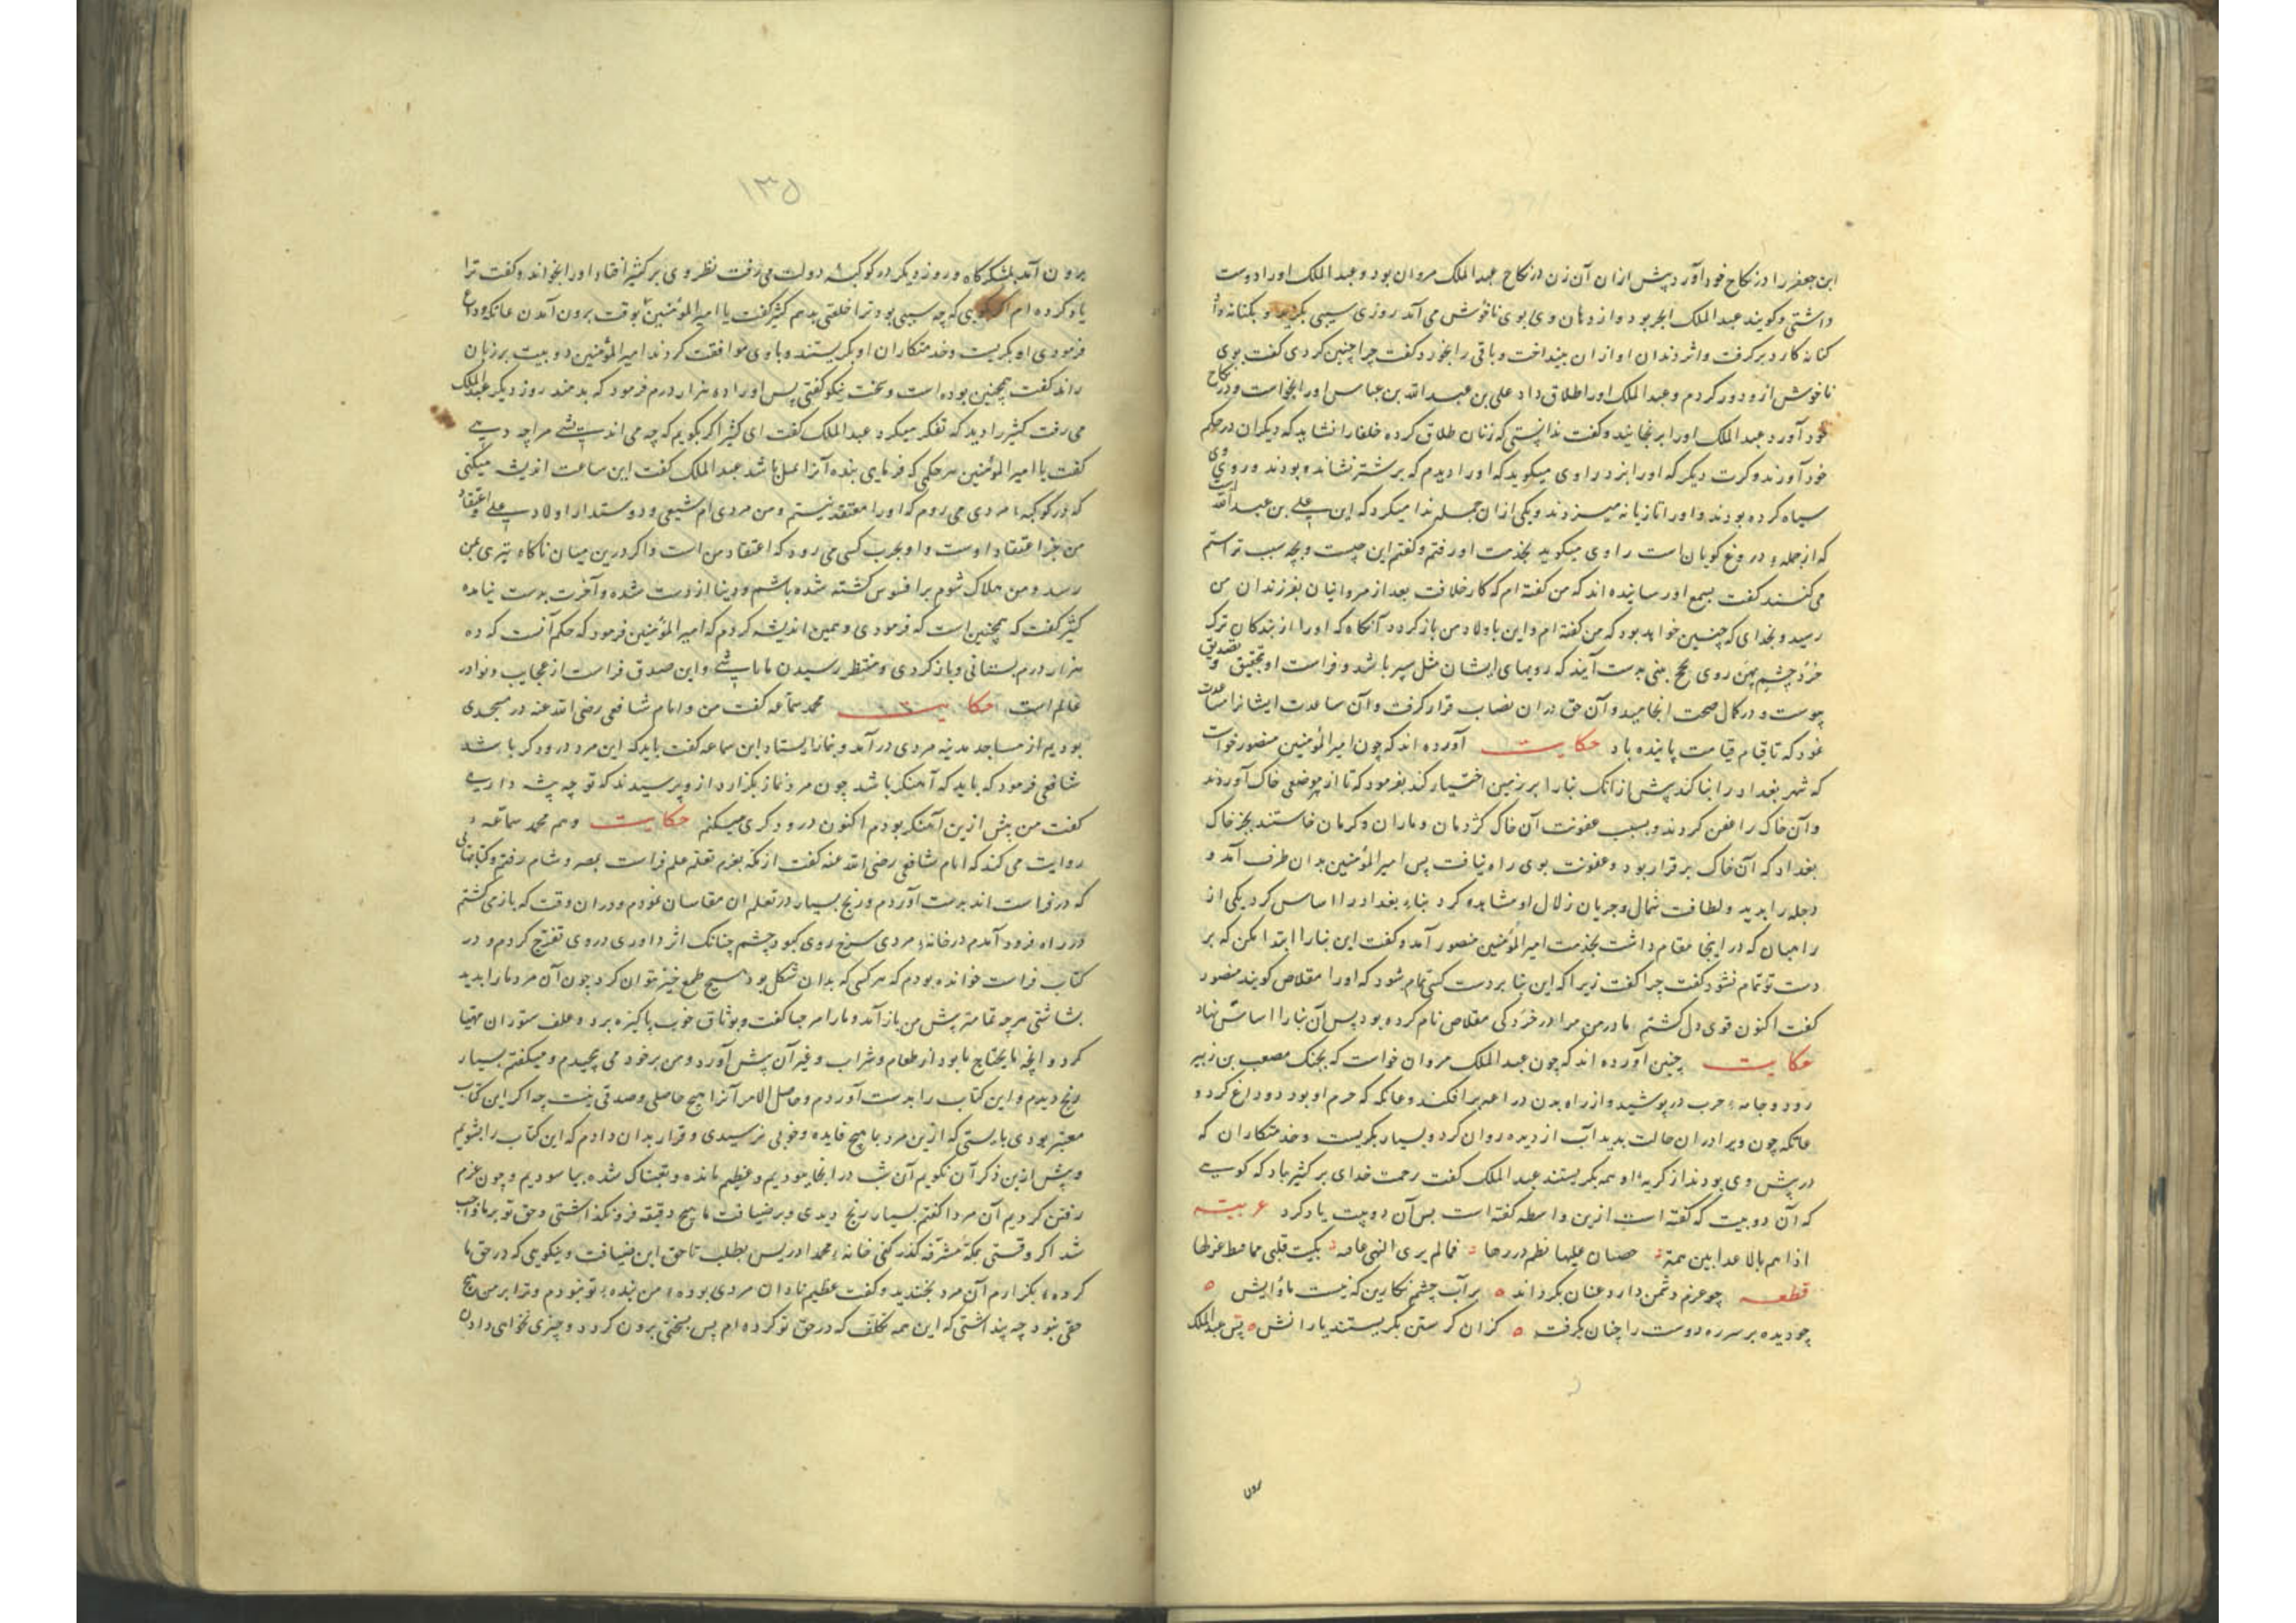 ابن جعفر را در نکاح خود آورد پیش ازان آن زن در نکاح عبد الملک مروان بود و عبد الملک او را دوست
داشتی و کویند عبد الملک ابخر بود و از دهان وی بوی ناخوش می آمد روزی سیبی بکزید و بکنانه داد
کنانه کارد برکرفت و اثر دندان او ازان بینداخت و باقی را بخورد کفت چرا چنین کردی کفت بوی
ناخوش ازو دور کردم و عبد الملک او را طلاق داد علی بن عبد الله بن عباس او را بخواست و در نکاح
خود آورد عبد الملک او را برنجانید و کفت ندانستی که زنان طلاق کرده خلفا را نشاید که دیکران در حکم
خود آورند و کرت دیکر که او را بزد راوی میکوید که او را دیدم که بر شتر نشانده بودند و روی وی
سیاه کرده بودند و او را تازیانه میزدند و یکی ازان جمله ندا میکرد که این علی بن عبد الله است
که از جمله دروغ کویان است راوی میکوید بخدمت او رفتم و کفتم این چیست و بچه سبب ترا ستم
می کنند کفت بسمع او رسانیده اند که من کفته ام که کار خلافت بعد از مروانیان بفرزندان من
رسد و بخدای که چنین خواهد بود که من کفته ام و این با ولاد من باز کردد آنکاه که او را از بندکان ترک
خرد چشم پهن روی بدست آیند که رویهای ایشان مثل سپر باشد و فراست او بتحقیق و تصدیق
پیوست و در کمال صحت انجامید و آن حق در ان نصاب قرار کرفت و آن سعادت ایشانرا مساعدت
نمود که تا قیام قیامت پاینده باد حکایت آورده اند که چون امیر المؤمنین منصور خواست
که شهر بغداد را بنا کند پیش ازانک بنا را بر زمین اختیار کند بفرمود که تا از هر موضعی خاک آوردند
و آن خاک را عفن کردند و بسبب عفونت آن خاک کژدمان و ماران و کرمان خاستند بجز خاک
بغداد که آن خاک برقرار بود و عفونت بوی راه نیافت پس امیر المؤمنین بدان طرف آمد و
دجله را بدید و لطافت شمال و جریان زلال او مشاهده کرد بناء بغداد را اساس کرد یکی از
راهبان که در اینجا مقام داشت بخدمت امیر المؤمنین منصور آمد و کفت این بنا را ابتدا مکن که بر
دست تو تمام نشود کفت چرا کفت زیرا که این بنا بر دست کسی تمام شود که او را مقلاص کویند منصور
کفت اکنون قوی دل کشتم مادر من مرا در خردکی مقلاص نام کرده بود پس آن بنا را اساس نهاد
حکایت چنین آورده اند که چون عبد الملک مروان خواست که بجنک مصعب بن زبیر
رود و جامه حرب در پوشید و از راه بدن دراعه برافکند و عاتکه که حرم او بود وداع کرد و
عاتکه چون ویرا دران حالت بدید آب از دیده روان کرد و بسیار بکریست و خدمتکاران که
در پیش وی بودند از کریه او همه بکریستند عبد الملک کفت رحمت خدای بر کثیر باد که کویی
که آن دو بیت که کفته است ازین واسطه کفته است پس آن دو بیت یاد کرد عربیة
اذا هم بالاعدا همة حصان علیها نظم در فلما لم یری النهی عاقه بکت
قطعه چو عزم دشمن دارد عنان بکرداند بر آب چشم نکارین که نیست ماوایش
چو دیده بر سر ره دوست را چنان بکرفت کزان کرستن بکریستند یارانش پس عبد الملک
رون
۱۳۵
برون آمد بلشکرکاه و روز دیکر در کوکبه دولت می رفت نظر وی بر کثیر افتاد او را بخواند و کفت ترا
یاد کرده ام اکر کویی که چه سببی بود ترا خلعتی بدهم کثیر کفت یا امیر المؤمنین بوقت برون آمدن عاتکه وداع
فرمودی او بکریست و خدمتکاران او بکریستند و با وی موافقت کردند امیر المؤمنین دو بیت بر زبان
راند کفت همچنین بوده است و سخت نیکو کفتی پس او را ده هزار درم فرمود که بدهند روز دیکر عبد الملک
می رفت کثیر را دید که تفکر میکرد عبد الملک کفت ای کثیر اکر بکویم که چه می اندیشی مرا چه دهی
کفت یا امیر المؤمنین هر حکمی که فرمایی بنده آنرا باشد عبد الملک کفت این ساعت اندیشه میکنی
که در کوکبه مردی می روم که او را معتقد نیستم و من مردی ام شیعی و دوستدار اولاد علی و اعتقاد
من جز اعتقاد اوست و او بحرب کسی می رود که اعتقاد من است و اکر درین میان ناکاه تیری بمن
رسد و من هلاک شوم برافسوس کشته شده باشم و دنیا از دست شده و آخرت بدست نیامده
کثیر کفت که همچنین است که فرمودی و همین اندیشه کردم که امیر المؤمنین فرمود که حکم آنست که ده
هزار درم بستانی و باز کردی و منتظر رسیدن ما باشی و این صدق فراست از عجایب و نوادر
عالم است حکایت محمد سماعه کفت من و امام شافعی رضی الله عنه در مسجدی
بودیم از مساجد مدینه مردی در آمد و بنماز ایستاد ابن سماعه کفت باید که این مرد درودکر باشد
شافعی فرمود که باید که آهنکر باشد چون مرد نماز بکزارد ازو پرسیدند که تو چه پیشه داری
کفت من پیش ازین آهنکر بودم اکنون درودکری میکنم حکایت و هم محمد سماعه
روایت می کند که امام شافعی رضی الله عنه کفت از مکه بعزم تعلم علم فراست بمصر و شام رفتم و کتابهایی
که در فراست اند بدست آوردم و رنج بسیار در تعلم ان مقاسات نمودم و دران وقت که باز می کشتم
در راه فرود آمدم در خانه مردی سرخ روی کبود چشم چنانک اثر داوری در وی تفرج کردم و در
کتاب فراست خوانده بودم که هر کسی که بدان شکل بود هیچ طمع خیر نتوان کرد چون آن مرد مارا بدید
بشاشتی هر چه تمامتر پیش من باز آمد و مارا مرحبا کفت و بوثاق خوب پاکیزه برد و علف ستوران مهیا
کرد و انچه مایحتاج ما بود از طعام و شراب و غیر آن پیش آورد و من بر خود می پیچیدم و میکفتم بسیار
رنج دیدم و این کتاب را بدست آوردم و حاصل الامر آنرا هیچ حاصلی و صدقی نیست چه اکر این کتاب
معتبر بودی بایستی که ازین مرد بما هیچ فایده و خوبی نرسیدی و قرار بدان دادم که این کتاب را بشویم
و پیش ازین ذکر آن نکویم آن شب در انجا بودیم و عظیم مانده و تعبناک شده بیاسودیم و چون عزم
رفتن کردیم آن مرد را کفتم بسیار رنج دیدی و در ضیافت ما هیچ دقیقه فرو نکذاشتی و حق تو بر ما واجب
شد اکر وقتی بمکه مشرفه کذر کنی خانه محمد ادریس بطلب تا حق این ضیافت و نیکویی که در حق ما
کرده بکزارم آن مرد بخندید و کفت عظیم نادان مردی بوده من بنده تو نبودم و ترا بر من هیچ
حقی نبود چه پنداشتی که این همه تکلف که در حق تو کرده ام پس بسختی برون کردد و چیزی نخواهی دادن